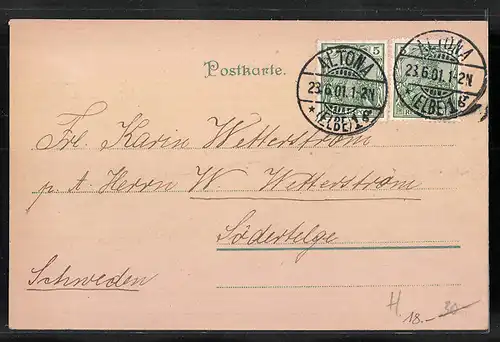 5 5
ALTONA ALTONA
Postkarte.
23.6.01.1-2N 23.6.01.1-2N
* (ELBE) 1g (ELBE) 1g
Frl. Karin Wetterström
p. A. Herrn W. Wetterström
Södertelge
Schweden
H 18.- 30